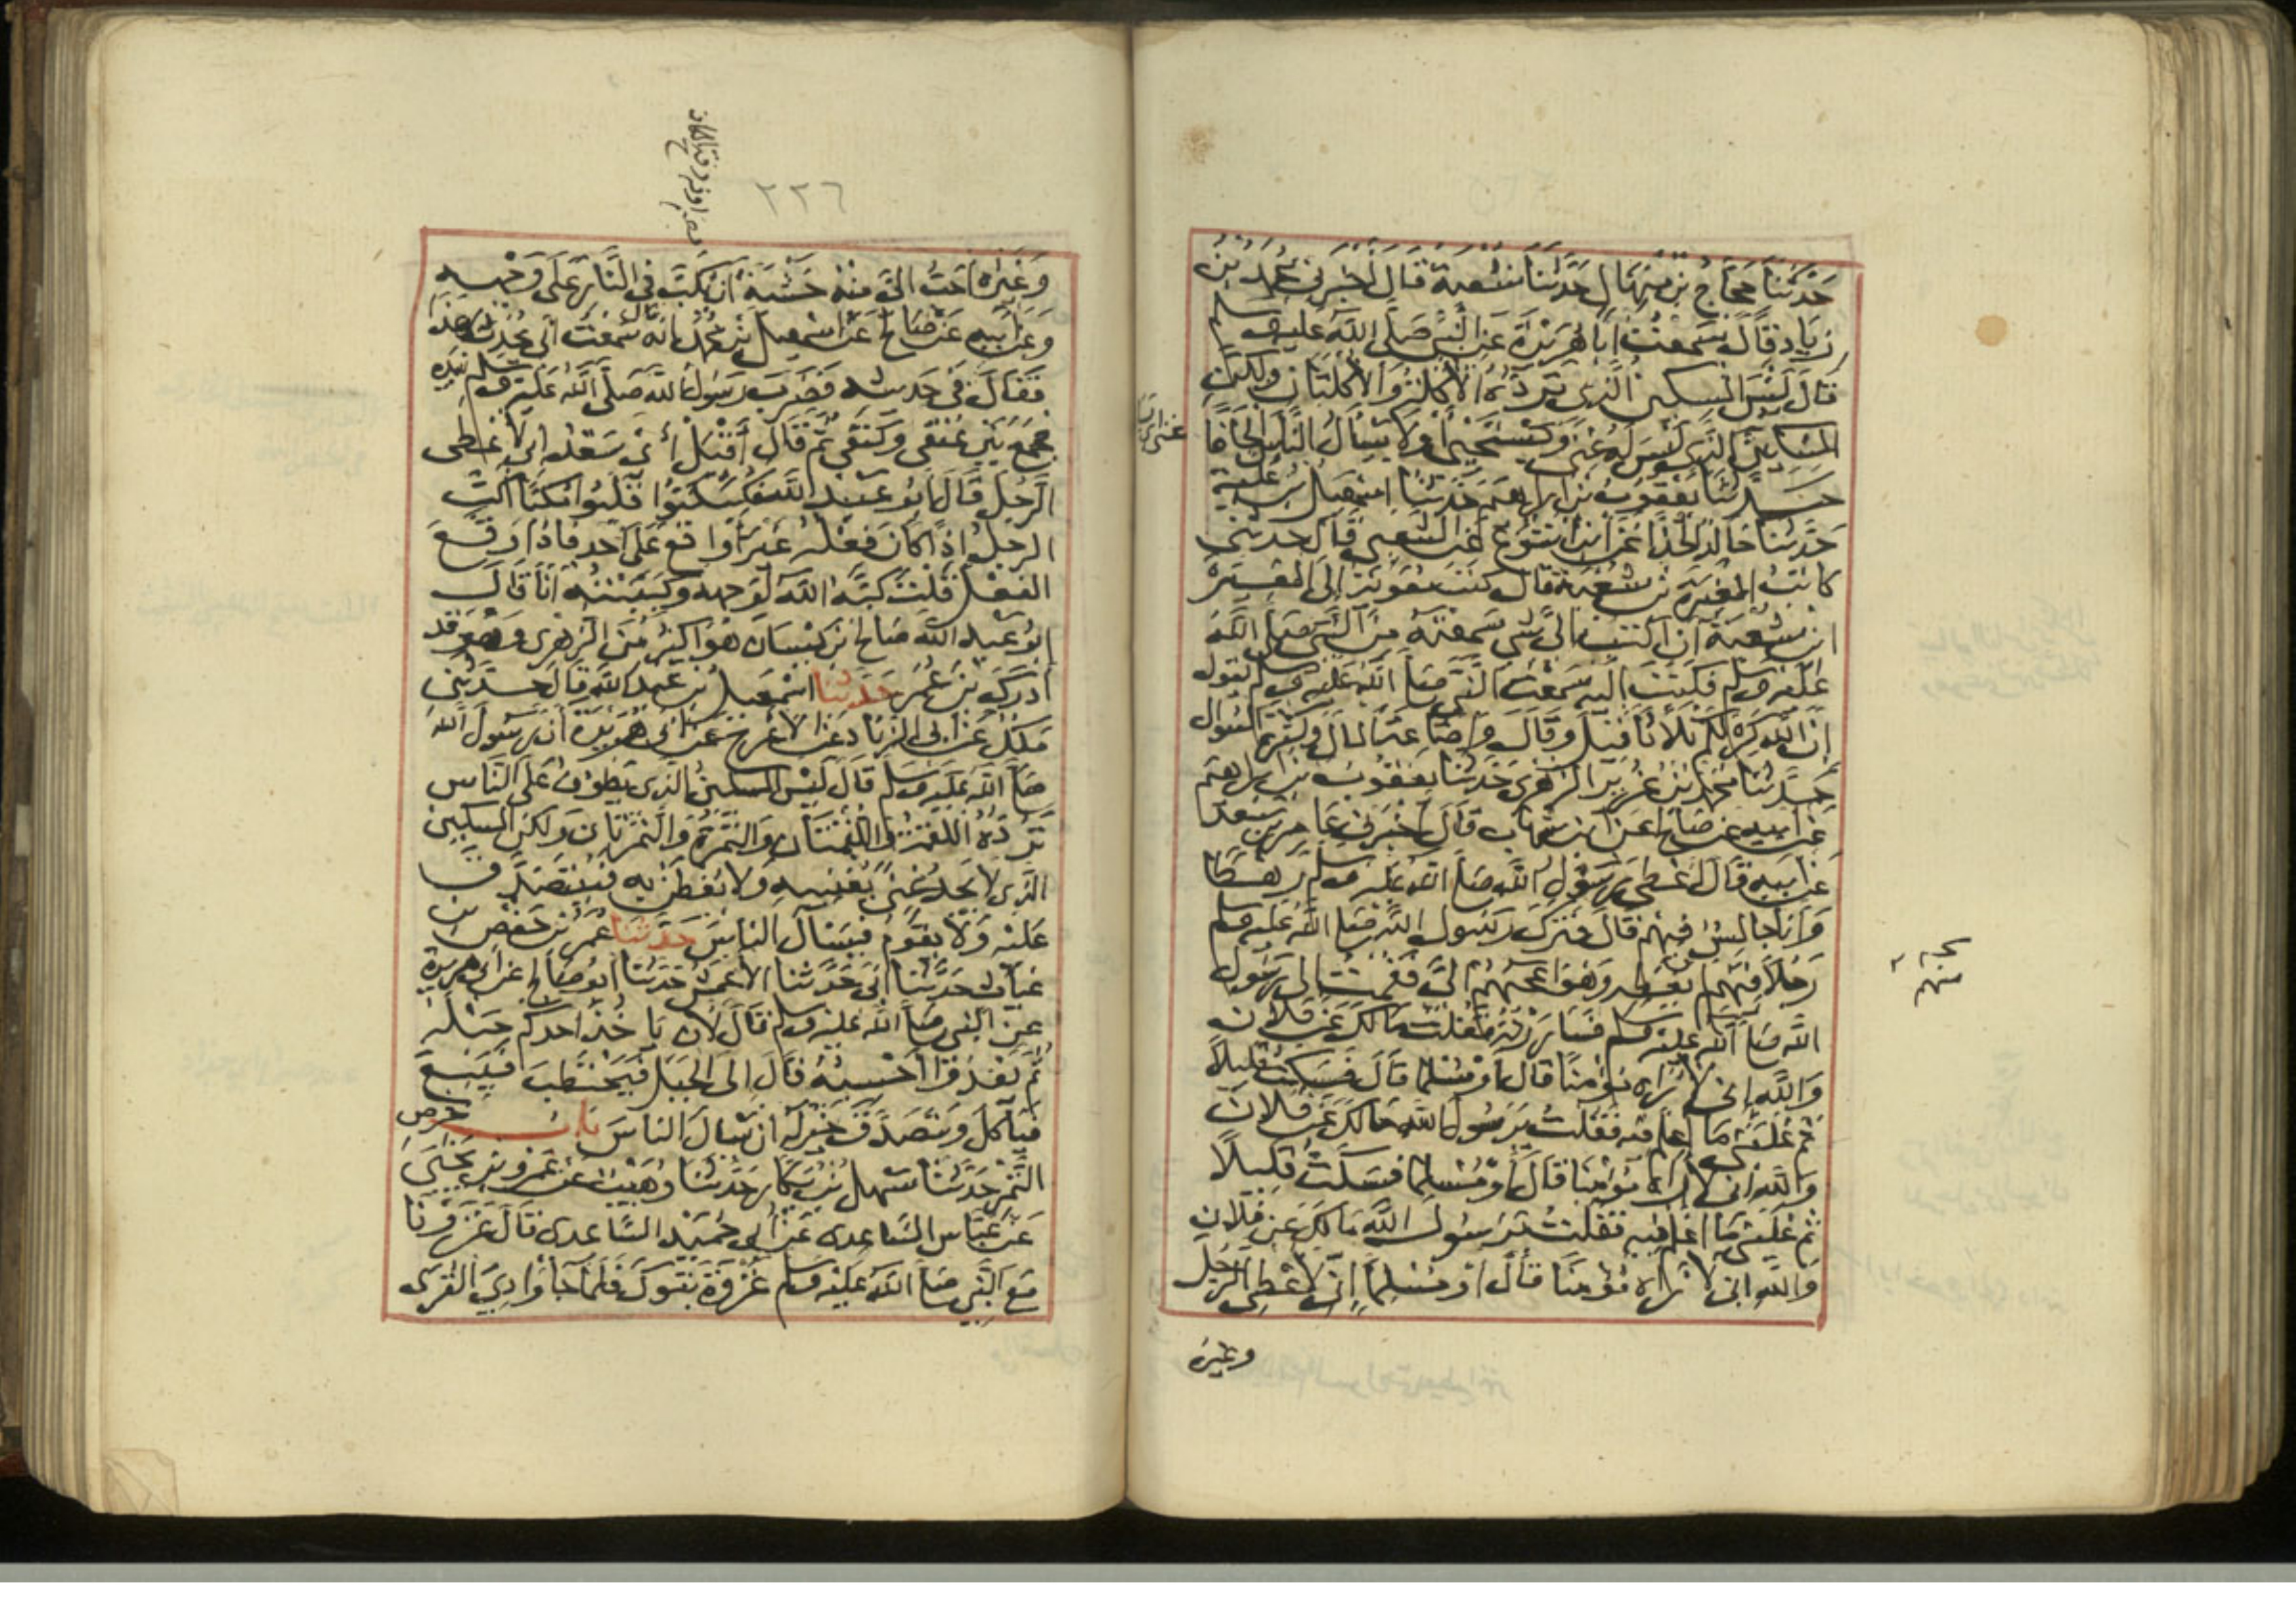 حدثنا حجاج بن منهال حدثنا شعبة قال اخبرني محمد بن
زياد قال سمعت ابا هريرة عن النبي صلى الله عليه وسلم
قال ليس المسكين الذي ترده الاكلة والاكلتان ولكن
المسكين الذي ليس له غنى ويستحيي او لا يسأل الناس الحافا
حدثنا يعقوب بن ابراهيم حدثنا اسمعيل بن علية
حدثنا خالد الحذاء عن ابن اشوع عن الشعبي قال حدثني
كاتب المغيرة بن شعبة قال كتب معوية الى المغيرة
ابن شعبة ان اكتب الي بشي سمعته من النبي صلى الله
عليه وسلم فكتب اليه سمعت النبي صلى الله عليه وسلم يقول
ان الله كره لكم ثلاثا قيل وقال واضاعة المال وكثرة السوال
حدثنا محمد بن غرير الزهري حدثنا يعقوب بن ابراهيم
عن ابيه عن صالح عن ابن شهاب قال اخبرني عامر بن سعد
عن ابيه قال اعطى رسول الله صلى الله عليه وسلم رهطا
وانا جالس فيهم قال فترك رسول الله صلى الله عليه وسلم
رجلا فيهم لم يعطه وهو اعجبهم الي فقمت الى رسول
الله صلى الله عليه وسلم فساررته فقلت مالك عن فلان
والله اني لاراه مؤمنا قال او مسلما قال فسكت قليلا
ثم غلبني ما اعلم فيه فقلت يرسول الله مالك عن فلان
والله اني لاراه مؤمنا قال او مسلما فسكت قليلا
ثم غلبني ما اعلم فيه فقلت يرسول الله مالك عن فلان
والله اني لاراه مؤمنا قال او مسلما اني لاعطي الرجل
وغيره
٢٢٦
وغيره احب الي منه خشية ان يكب في النار على وجهه
وعن ابيه عن صالح عن اسمعيل بن محمد انه قال سمعت ابي يحدث هذا
فقال في حديثه فضرب رسول الله صلى الله عليه وسلم بيده
فجمع بين عنقي وكتفي ثم قال اقبل أي سعد اني لاعطي
الرجل قال ابو عبد الله فكبكبوا قلبوا مكبا اكب
الرجل اذا كان فعله غير واقع على احد فاذا وقع
الفعل قلت كبه الله لوجهه وكببته انا قال
ابو عبد الله صالح بن كيسان هو اكبر من الزهري وهو قد
ادرك بن عمر حدثنا اسمعيل بن عبد الله قال حدثني
ملك عن ابي الزناد عن الاعرج عن ابي هريرة ان رسول الله
صلى الله عليه وسلم قال ليس المسكين الذي يطوف على الناس
ترده اللقمة واللقمتان والتمرة والتمرتان ولكن المسكين
الذي لا يجد غنى يغنيه ولا يفطن به فيتصدق
عليه ولا يقوم فيسأل الناس حدثنا عمر بن حفص بن
غياث حدثنا ابي حدثنا الاعمش حدثنا ابو صالح عن ابي هريرة
عن النبي صلى الله عليه وسلم قال لان ياخذ احدكم حبله
ثم يغدو أحسبه قال الى الجبل فيحتطب فيبيع
فيأكل ويتصدق خير له ان يسال الناس باب خرص
التمر حدثنا سهل بن بكار حدثنا وهيب عن عمرو بن يحيى
عن عباس الساعدي عن ابي حميد الساعدي قال غزونا
مع النبي صلى الله عليه وسلم غزوة تبوك فلما جاء وادي القرى